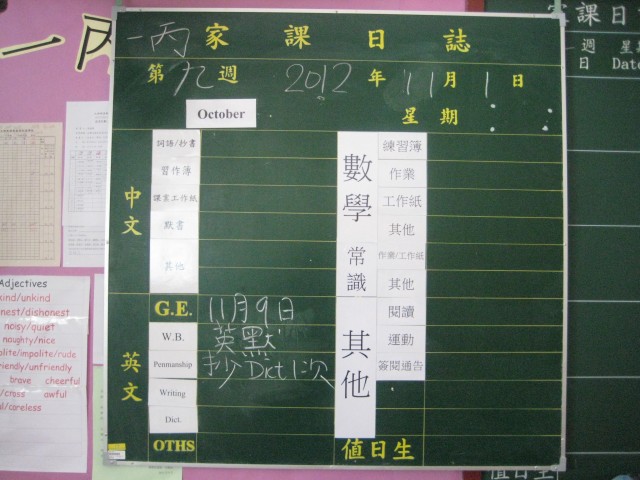 一丙 家課日誌
第九週 2012年11月1日
October 星期
中文
詞語/抄書
習作簿
課室工作紙
默書
其他
英文
G.E. 11月9日
W.B. 英默
Penmanship 抄Dict 1次
Writing
Dict.
OTHS
數學
練習簿
作業
工作紙
其他
常識
作業/工作紙
其他
其他
閱讀
運動
簽閱通告
值日生
一丙
Adjectives
kind/unkind
honest/dishonest
noisy/quiet
naughty/nice
polite/impolite/rude
friendly/unfriendly
brave cheerful
cross awful
careless
家課日
週 星
日 Date
值日生